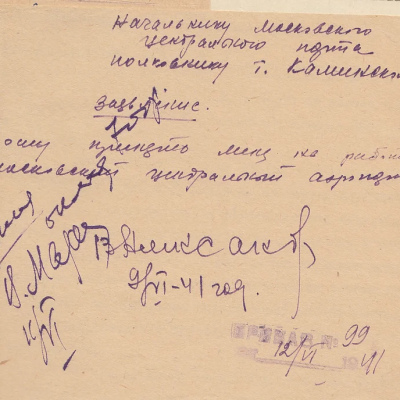 Начальнику Московского
Центрального порта
полковнику т. Каминско
Заявление.
ошу принять меня на работ
московский центральный аэропо
В Алексаков
9/VI-41 год.
11/VI
ПРИКАЗ № 99
12/VI 1941